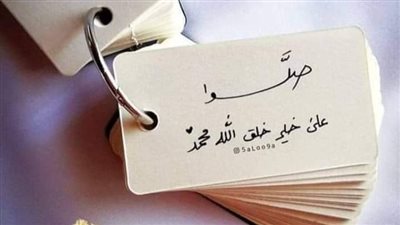 صلَّوا
على خير خلق الله محمد
@5aLoo9a